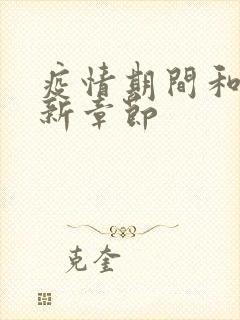 疫情期間和
新章節
克奎